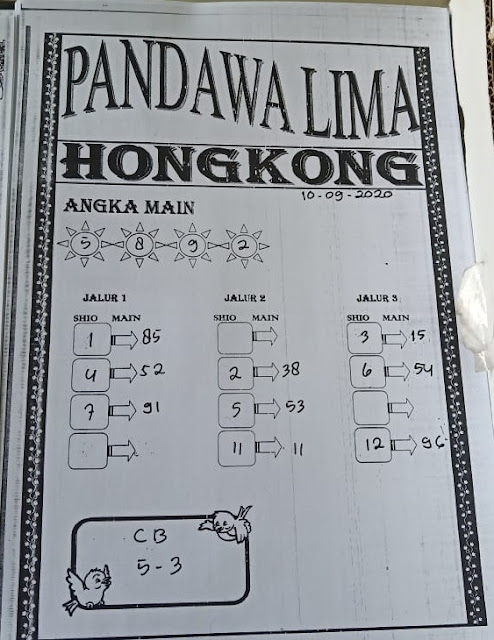 PANDAWA LIMA
HONGKONG
10-09-2020
ANGKA MAIN
5 8 9 2
JALUR 1 JALUR 2 JALUR 3
SHIO MAIN SHIO MAIN SHIO MAIN
1 85 3 15
4 52 2 38 6 54
7 91 5 53
11 11 12 96
CB
5-3